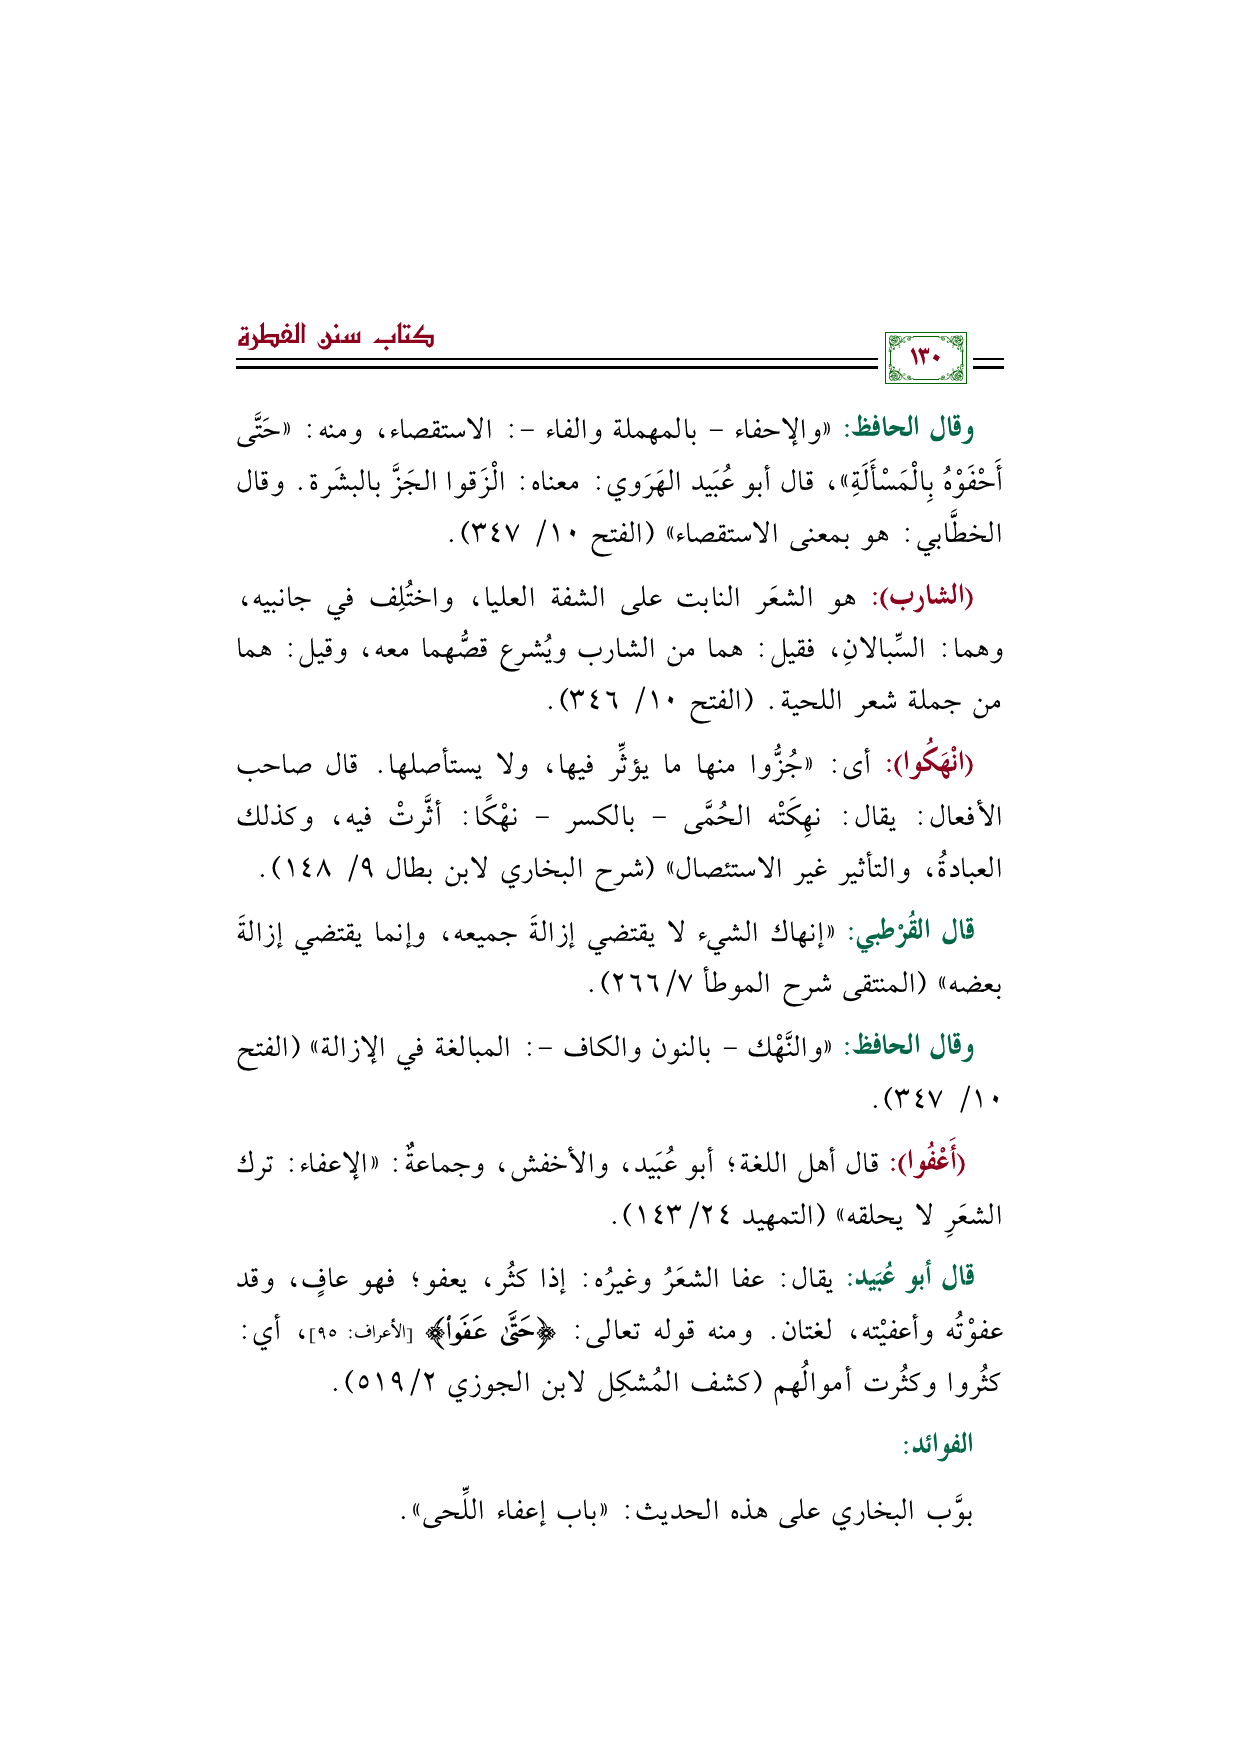 كتاب سنن الفطرة
١٣٠
وقال الحافظ: «والإحفاء – بالمهملة والفاء –: الاستقصاء، ومنه: «حَتَّى
أَحْفَوْهُ بِالْمَسْأَلَةِ»، قال أبو عُبَيد الهَرَوي: معناه: الْزَقوا الجَزَّ بالبشَرة. وقال
الخطَّابي: هو بمعنى الاستقصاء» (الفتح ١٠/ ٣٤٧).
(الشارب): هو الشعَر النابت على الشفة العليا، واختُلِف في جانبيه،
وهما: السِّبالانِ، فقيل: هما من الشارب ويُشرع قصُّهما معه، وقيل: هما
من جملة شعر اللحية. (الفتح ١٠/ ٣٤٦).
(انْهَكُوا): أى: «جُزُّوا منها ما يؤثِّر فيها، ولا يستأصلها. قال صاحب
الأفعال: يقال: نهِكَتْه الحُمَّى – بالكسر – نهْكًا: أثَّرتْ فيه، وكذلك
العبادةُ، والتأثير غير الاستئصال» (شرح البخاري لابن بطال ٩/ ١٤٨).
قال القُرْطبي: «إنهاك الشيء لا يقتضي إزالةَ جميعه، وإنما يقتضي إزالةَ
بعضه» (المنتقى شرح الموطأ ٢٦٦/٧).
وقال الحافظ: «والنَّهْك – بالنون والكاف –: المبالغة في الإزالة» (الفتح
١٠/ ٣٤٧).
(أَعْفُوا): قال أهل اللغة؛ أبو عُبَيد، والأخفش، وجماعةٌ: «الإعفاء: ترك
الشعَرِ لا يحلقه» (التمهيد ١٤٣/٢٤).
قال أبو عُبَيد: يقال: عفا الشعَرُ وغيرُه: إذا كثُر، يعفو؛ فهو عافٍ، وقد
عفوْتُه وأعفيْته، لغتان. ومنه قوله تعالى: ﴿حَتَّىٰ عَفَواْ﴾ [الأعراف: ٩٥]، أي:
كثُروا وكثُرت أموالُهم (كشف المُشكِل لابن الجوزي ٥١٩/٢).
الفوائد:
بوَّب البخاري على هذه الحديث: «باب إعفاء اللِّحى».